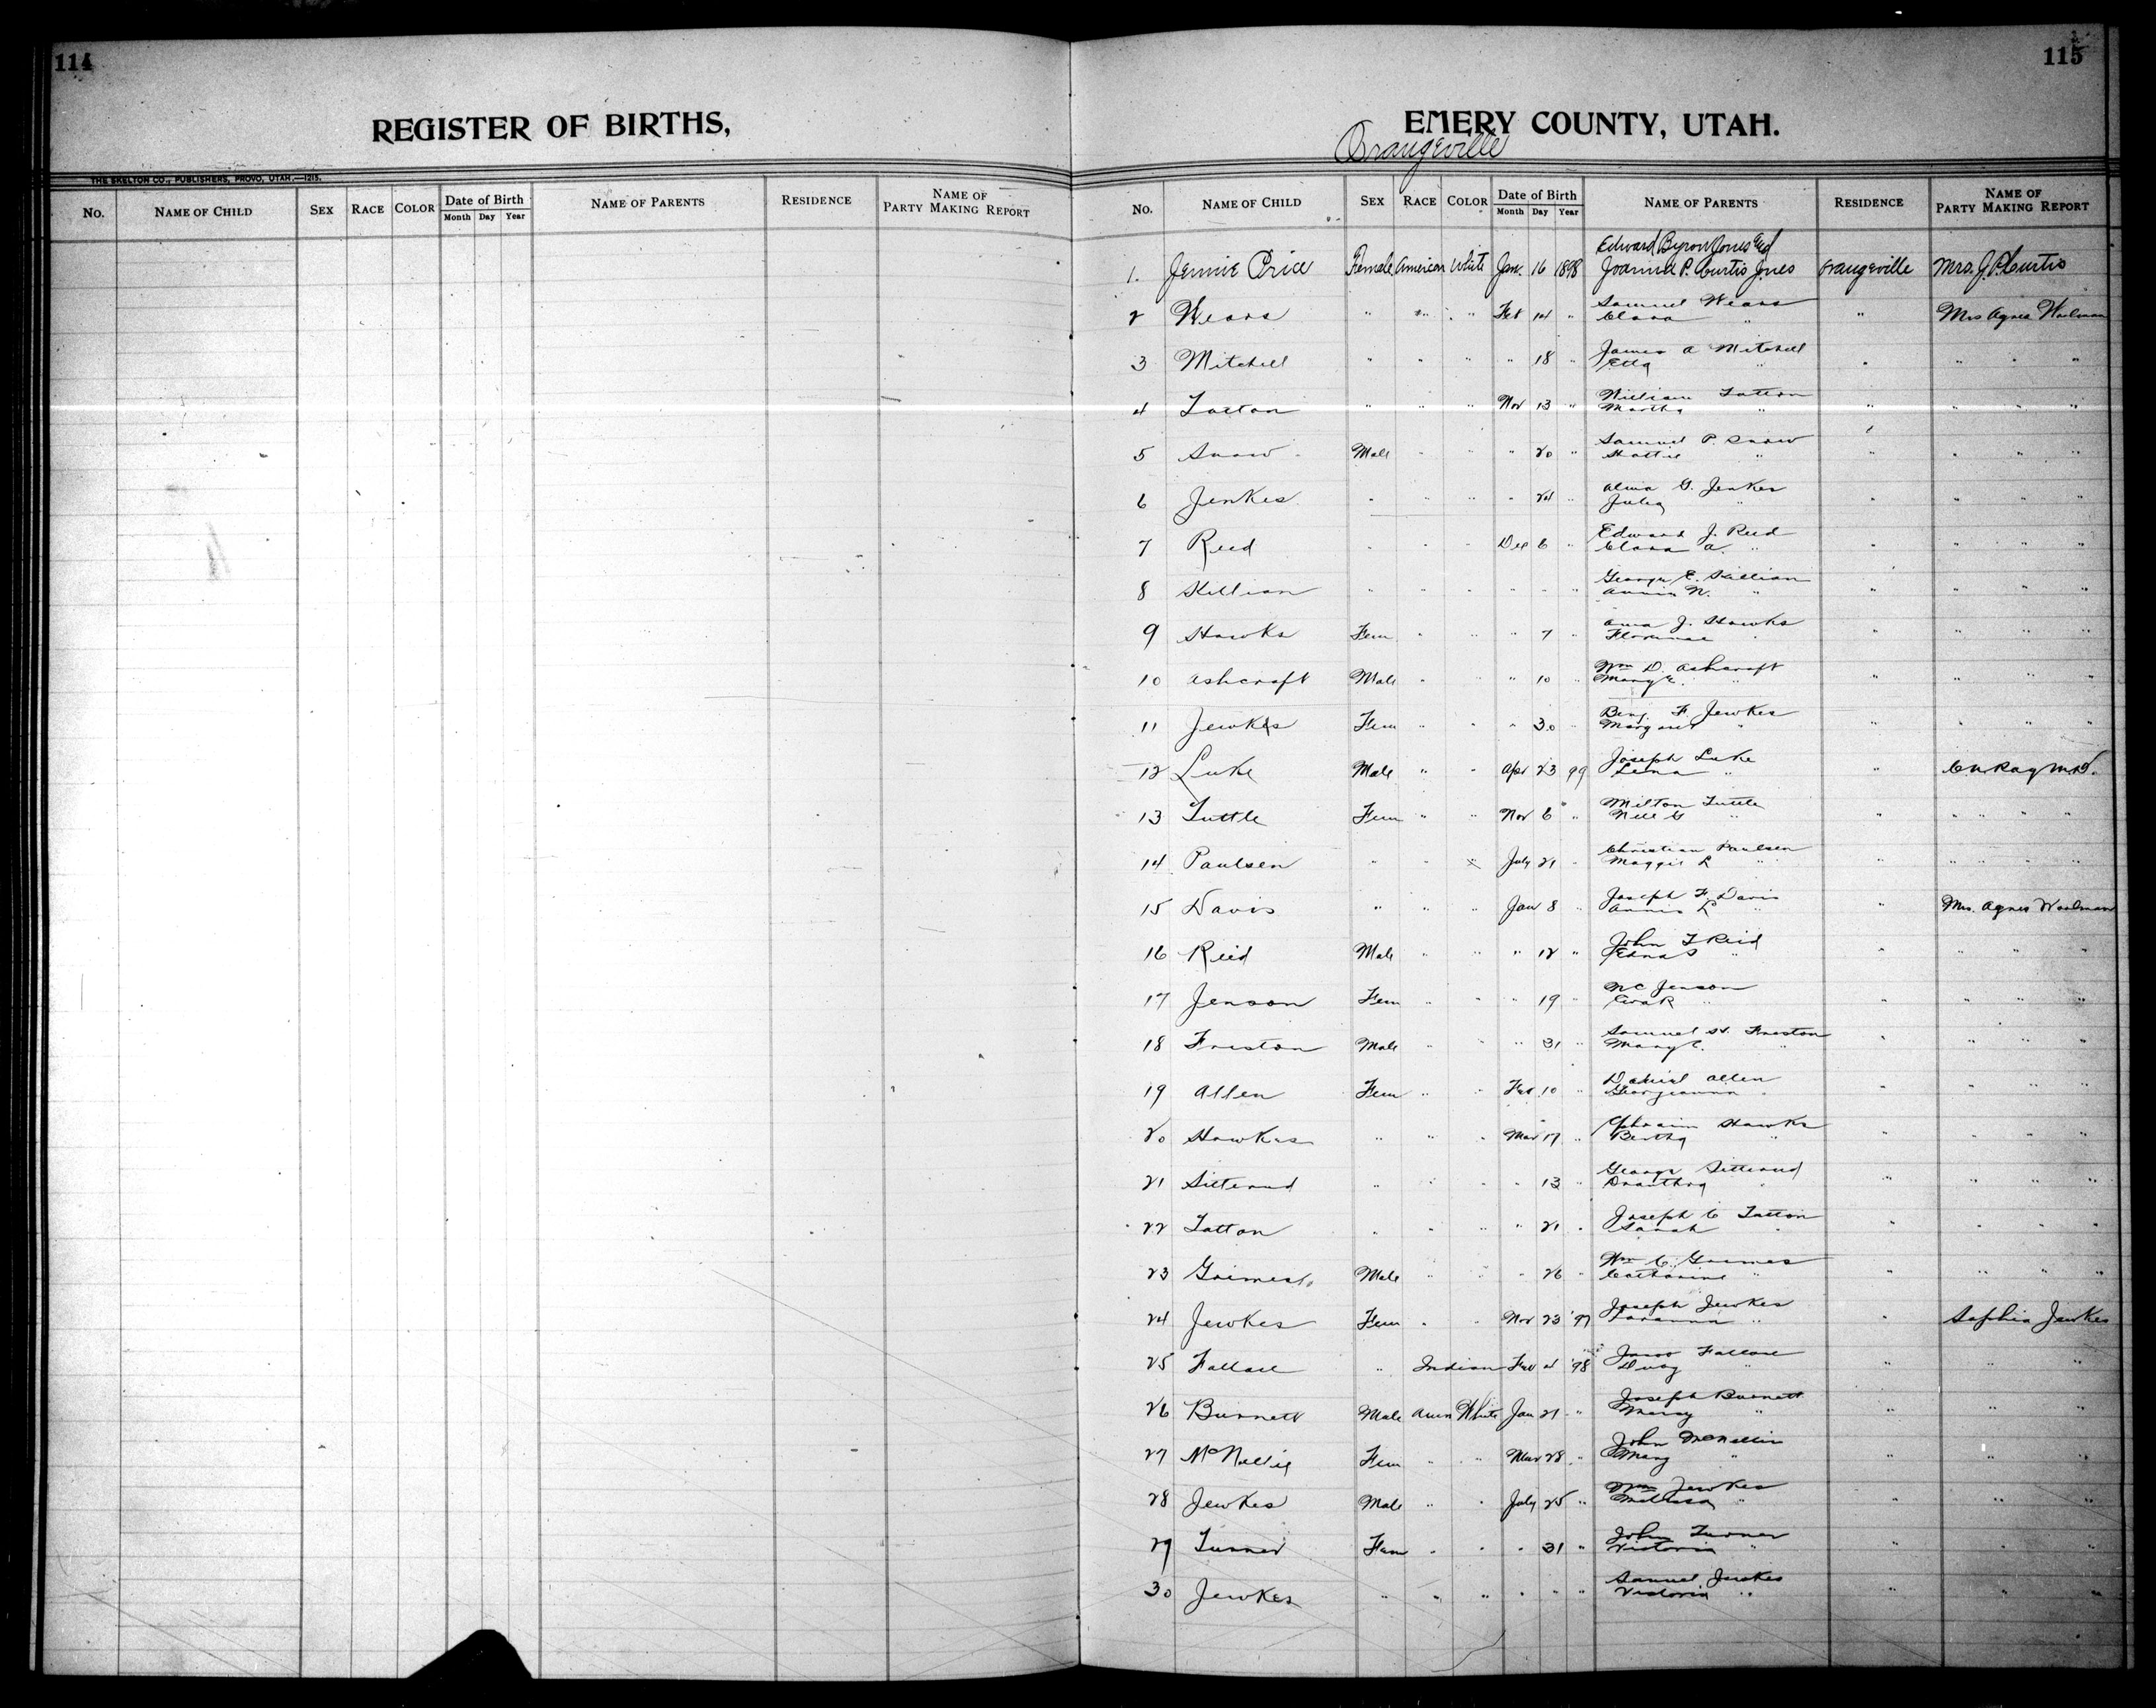 114
REGISTER OF BIRTHS,
THE SKELTON CO., PUBLISHERS, PROVO, UTAH.—1215.
No. NAME OF CHILD SEX RACE COLOR Date of Birth Month Day Year NAME OF PARENTS RESIDENCE NAME OF PARTY MAKING REPORT
115
EMERY COUNTY, UTAH.
Orangeville
No. NAME OF CHILD SEX RACE COLOR Date of Birth Month Day Year NAME OF PARENTS RESIDENCE NAME OF PARTY MAKING REPORT
Edward Byron Jones and
1. Jennie Price Female American White Jan. 16 1898 Joanna P. Curtis Jones Orangeville Mrs. J. P. Curtis
Samuel Wears
2 Wears " " " Feb 14 " Clara " " Mrs Agnes Woolman
James A Mitchell
3 Mitchell " " " " 18 " Etta " " " " "
William Tatton
4 Tatton " " " Nov 13 " Martha " " " " "
Samuel P. Snow
5 Snow Male " " " 20 " Hattie " " " " "
Alma G. Jewkes
6 Jenkes " " " " 24 " Julia " " " " "
Edward J. Reid
7 Reed " " " Dec 6 " Clara A. " " " " "
George E. Killian
8 Killian " " " " " " Annie N. " " " " "
J. Hawks
9 Hawks Fem " " " 7 " Florence " " " " "
Wm D. Ashcraft
10 Ashcraft Male " " " 10 " Mary E. " " " " "
Benj. F. Jewkes
11 Jewkes Fem " " " 30 " Margaret " " " " "
Joseph Luke
12 Luke Male " " Apr 23 99 Lena " " Ray M.D.
Milton Tuttle
13 Tuttle Fem " " Nov 6 " Nell G " " " " " "
Christian Paulsen
14 Paulsen " " " July 21 " Maggie L " " " " " "
Joseph F. Davis
15 Davis " " " Jan 8 " Annie L " " Mrs. Agnes Woolman
John T Reid
16 Reid Male " " " 12 " Edna S " " " " "
N C Jenson
17 Jenson Fem " " " 19 " Eva R " " " " "
Samuel H. Freston
18 Freston Male " " " 31 " Mary C. " " " " "
Daniel Allen
19 Allen Fem " " Feb 10 " Georgianna " " " " "
Ephraim Hawks
20 Hawkes " " " Mar 17 " Bertha " " " " "
George Sitterud
21 Sitterud " " " " 13 " " " " " "
Joseph C Tatton
22 Tatton " " " " 21 " Sarah " " " " "
Wm C. Grimes
23 Grimes Male " " " 26 " Catharine " " " " "
Joseph Jewkes
24 Jewkes Fem " " Nov 23 '97 " " Sophia Jewkes
25 " Indian Feb '98 " " " "
Joseph Burnett
26 Burnett Male Amn White Jan 21 " " " " "
John McNellie
27 McNellie Fem " " Mar 28 " Mary " " " "
Wm Jewkes
28 Jewkes Male " " July 25 " Melissa " " " "
John Turner
29 Turner Fem " " " 31 " Victoria " " " "
Samuel Jewkes
30 Jewkes " " " " " " Victoria " " " "